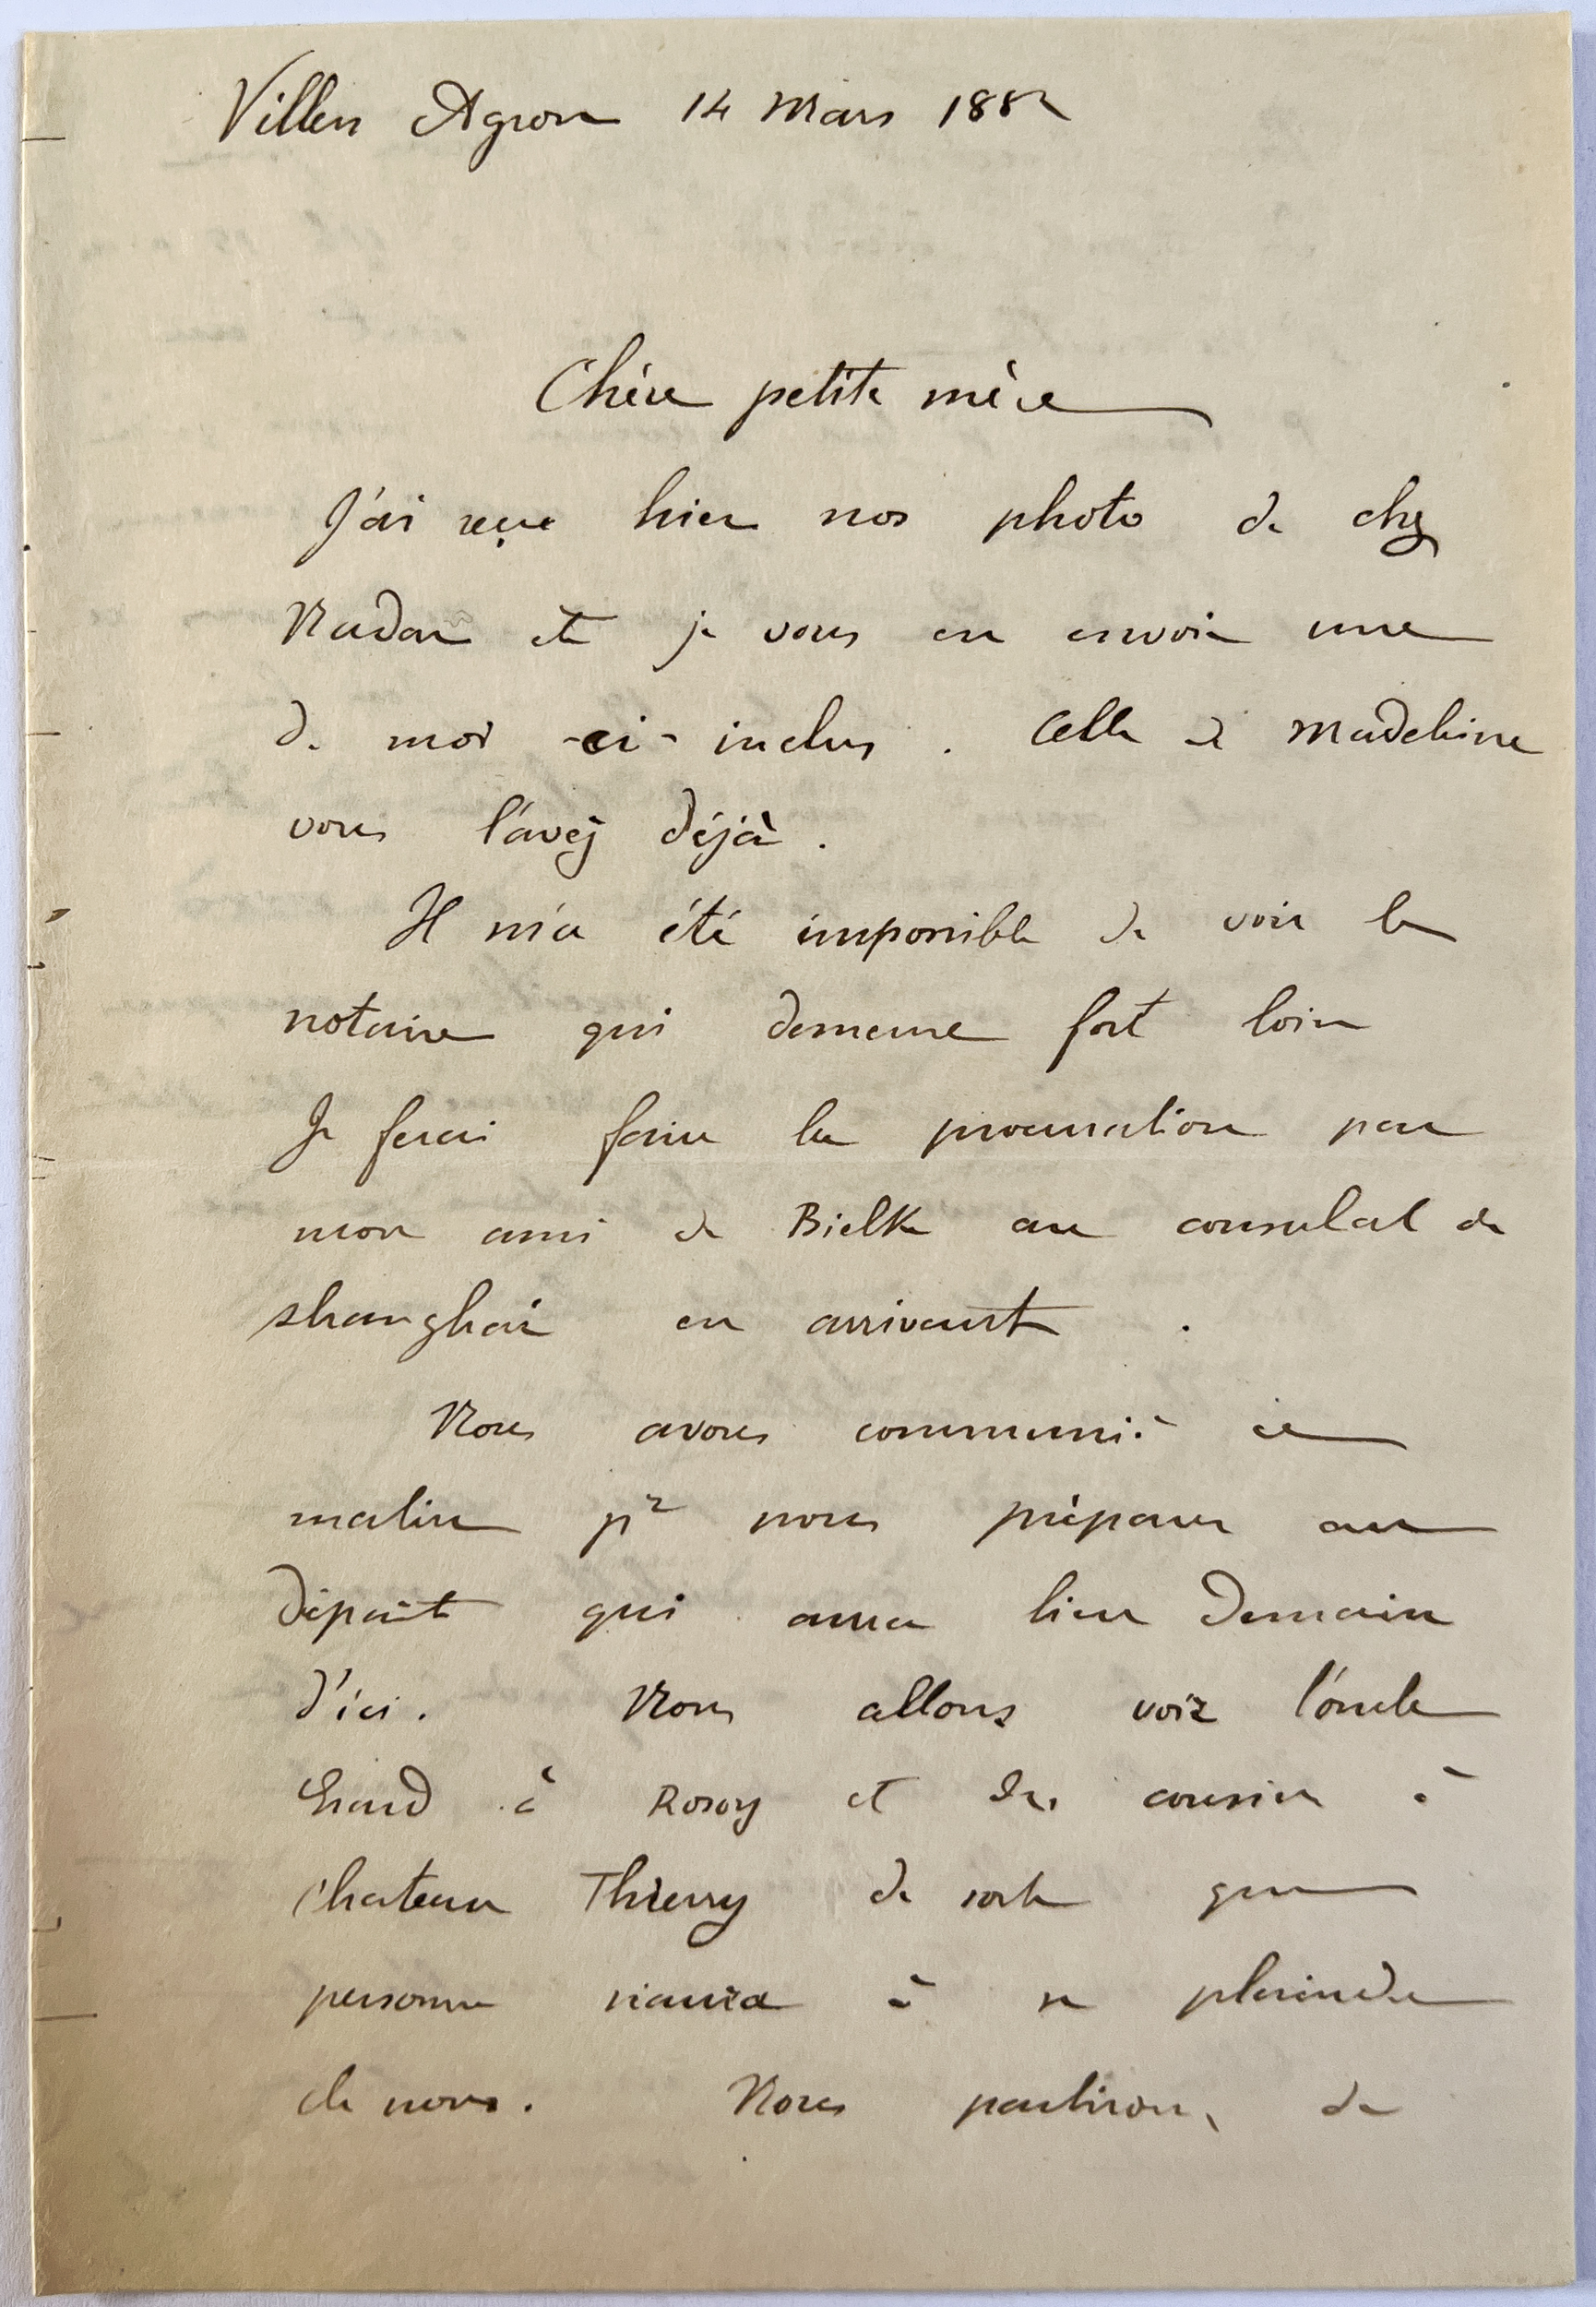 Villers Agron 14 Mars 1882
Chère petite mère
J'ai reçu hier nos photo de chez
Nadar et je vous en envoie une
de moi -ci- inclus. Celle de Madeleine
vous l'avez déjà.
Il m'a été impossible de voir le
notaire qui demeure fort loin
Je ferai faire la procuration par
mon ami de Bielke au consulat de
shanghai en arrivant.
Nous avons communié ce
matin pr nous préparer au
départ qui aura lieu Demain
d'ici. Nous allons voir l'oncle
à Rosoy et des cousins à
Chateau Thierry de sorte que
personne n'aura à se plaindre
de nous. Nous partirons de